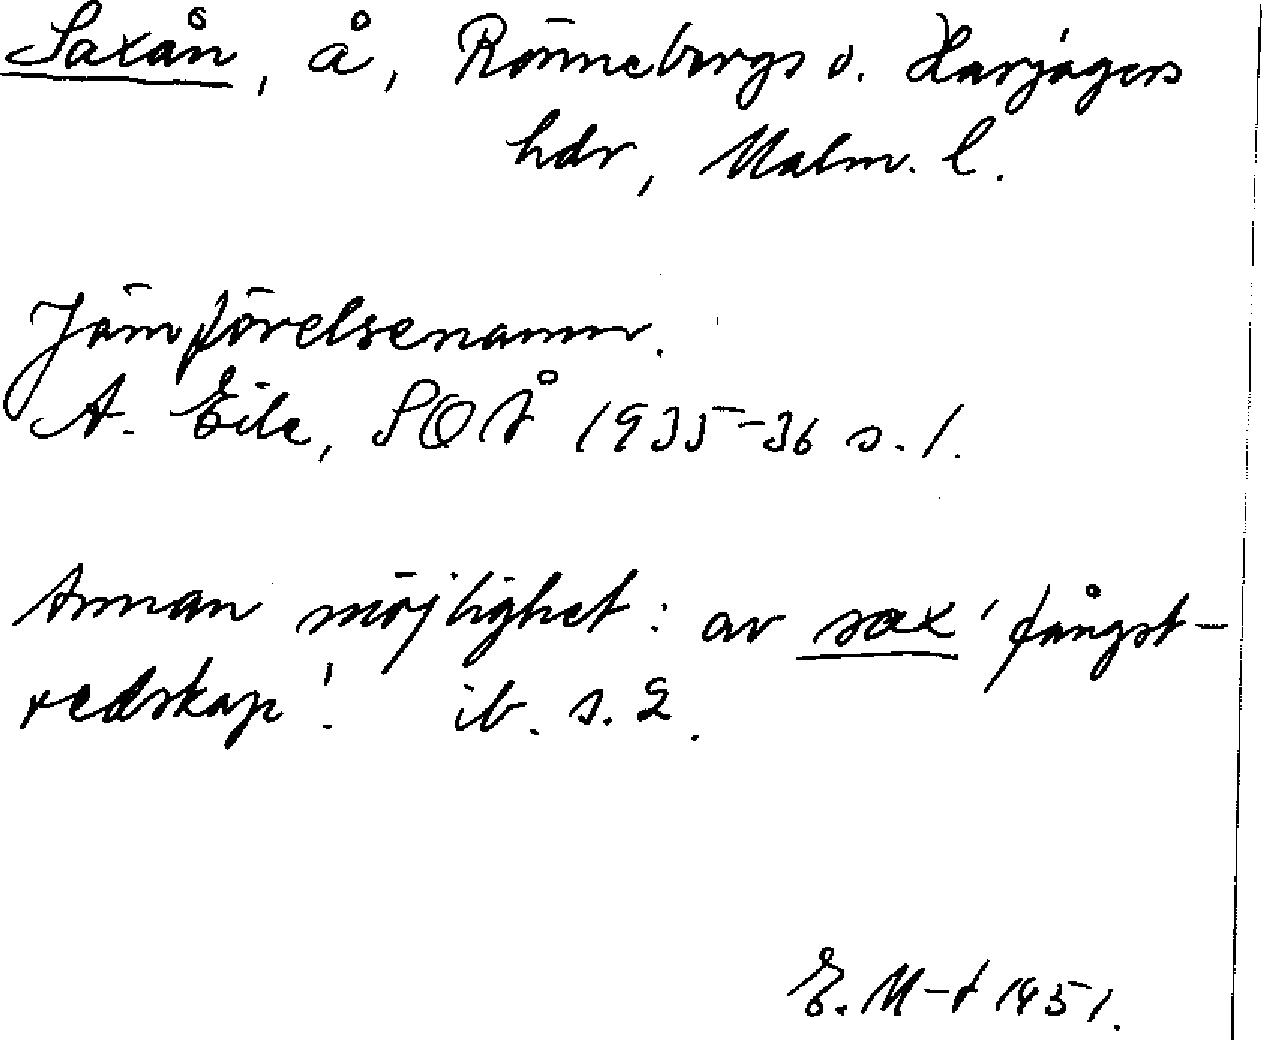 Saxån, å, Rönnebergs o. Harjagers
hdr, Malm. l.
Jämförelsenamn.
A. Eile, SOÅ 1935-36 s. 1.
Annan möjlighet: av sax 'fångst-
redskap'. ib. s. 2.
E. M-t 1951.